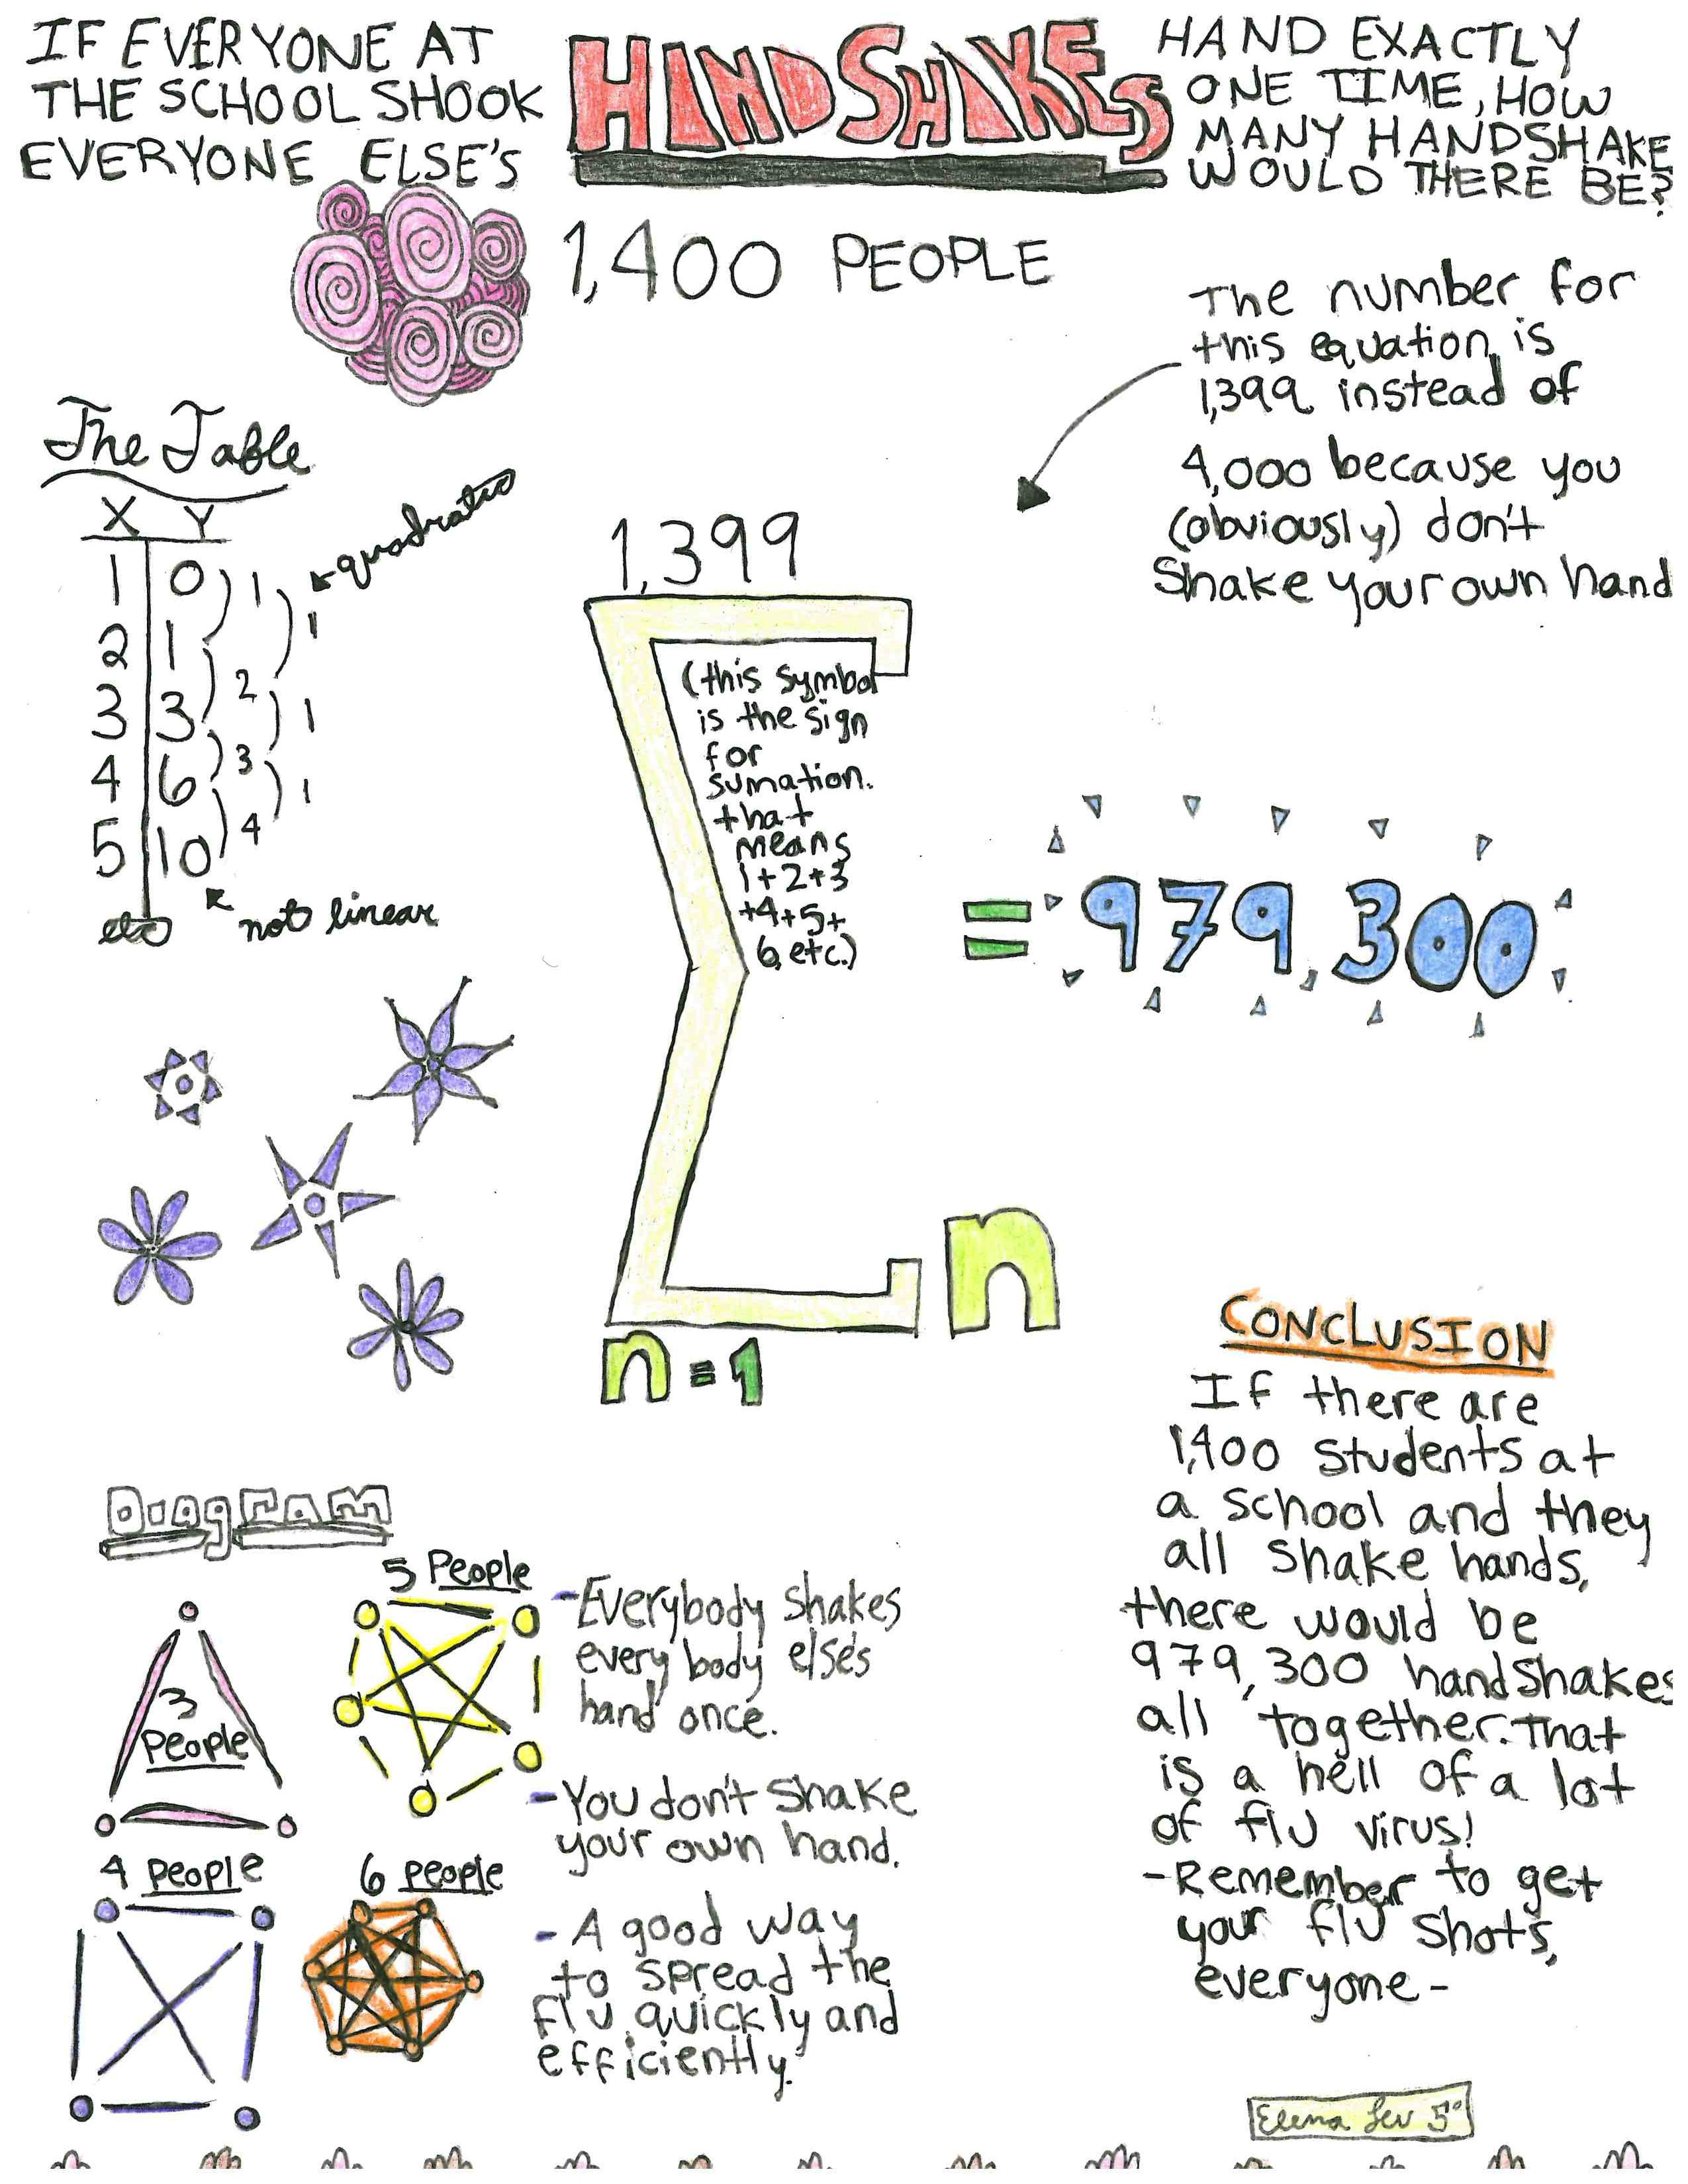 IF EVERYONE AT
THE SCHOOL SHOOK
EVERYONE ELSE'S
HANDSHAKES
HAND EXACTLY
ONE TIME, HOW
MANY HANDSHAKE
WOULD THERE BE?
1,400 PEOPLE
The number for
this equation is
1,399 instead of
4,000 because you
(obviously) don't
shake your own hand
The Table
X Y
1 0
2 1
3 3
4 6
5 10
etc
1
2
3
4
1
1
1
quadratic
not linear
1,399
(this symbol
is the sign
for
sumation.
that
means
1+2+3
+4+5+
6, etc.)
n
n=1
= 979,300
Diagram
3
People
5 People
4 people
6 people
-Everybody shakes
every body else's
hand once.
-You don't shake
your own hand.
- A good way
to spread the
flu quickly and
efficiently.
CONCLUSION
If there are
1,400 students at
a school and they
all shake hands,
there would be
979,300 handshakes
all together. That
is a hell of a lot
of flu virus!
-Remember to get
your flu shots,
everyone-
Elena Lev 5°